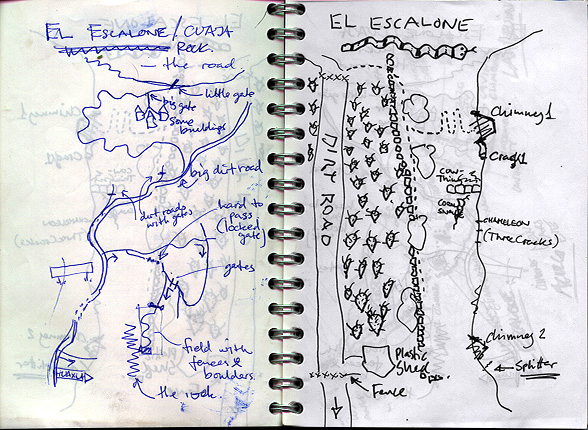 EL ESCALONE / CUAJA
ROCK.
— the road
little gate
big gate
Some
buildings
big dirt road
dirt roads
with gates
hard to
pass
(locked
gate)
gates
field with
fences &
boulders.
the rock.
EL ESCALONE
DIRT ROAD
Chimney 1
Crack 1
CHAMELEON
(Three Cracks)
Chimney 2
Splitter
Plastic
Shed
Fence